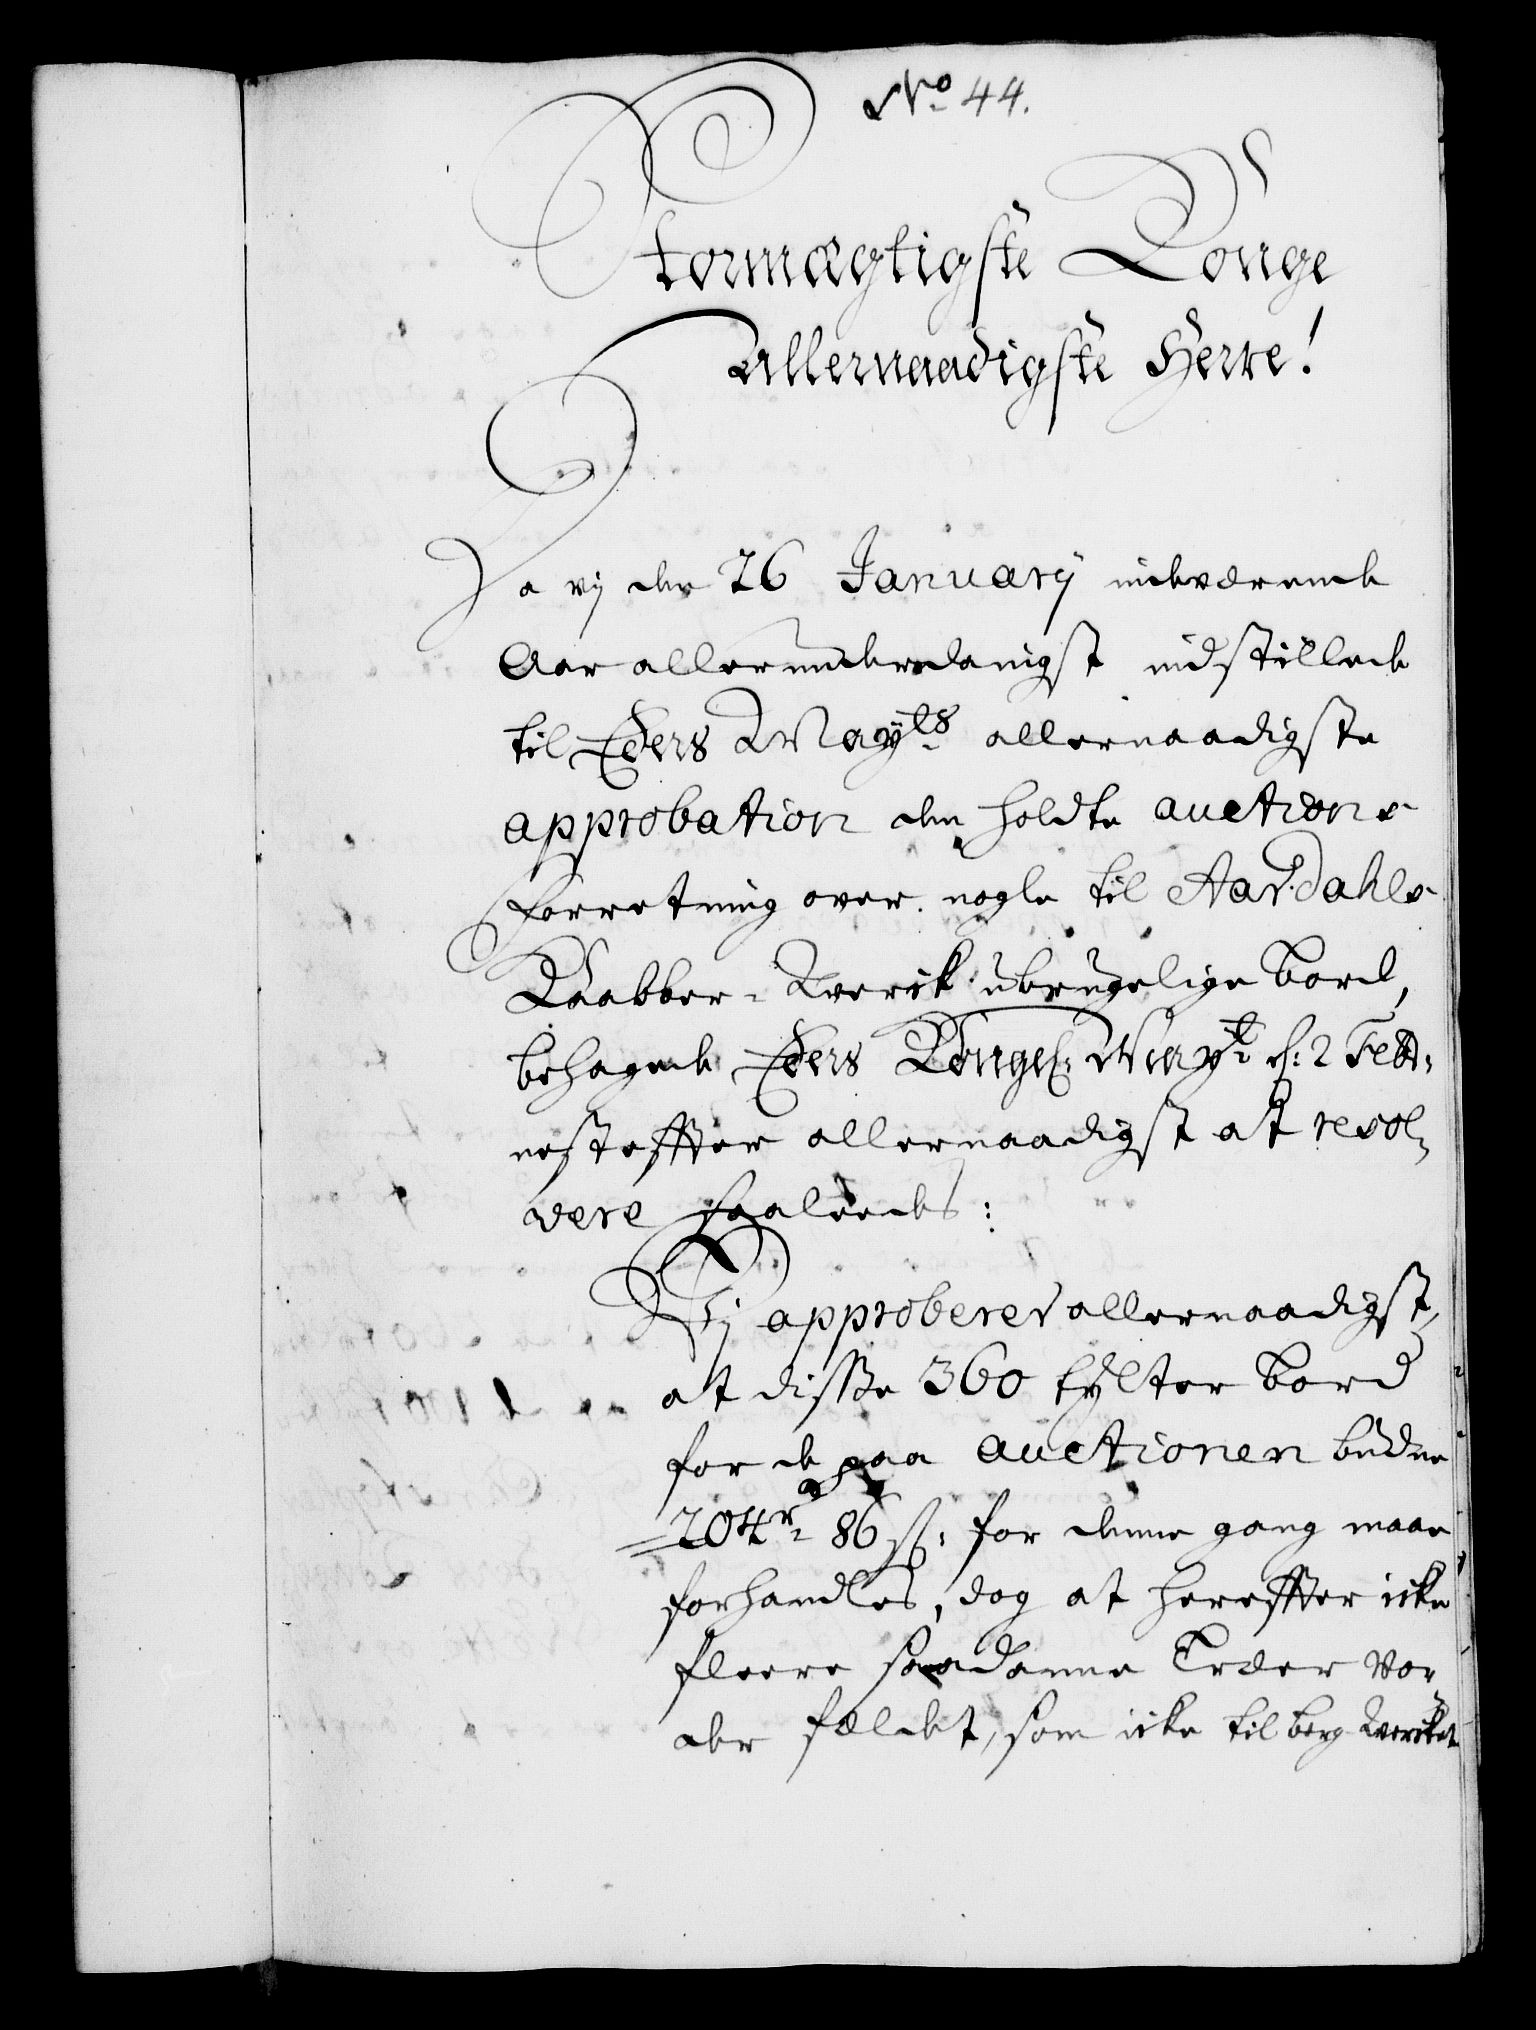 No 44.
Stormægtigste Konge
Allernaadigste Herre!
Da vj den 26 Januarij indeværende
Aar allerunderdanigst indstillede
til Eders Mayts allernaadigste
approbation den holdte auctions
forretning over nogle til Aardahls
Kaabber-Werck ubrugelige bord,
behagede Eders Kongel: Mayt d: 2 Febr:
nesteffter allernaadigst at resol-
vere saaleedes:
Vj approberer allernaadigst,
at disse 360 tylter bord
for de paa auctionen budne
204 r 86 s: for denne gang maae
forhandles, dog at hereffter icke
fleere saadanne Træer vor
der fældet, som icke til berg Wercket